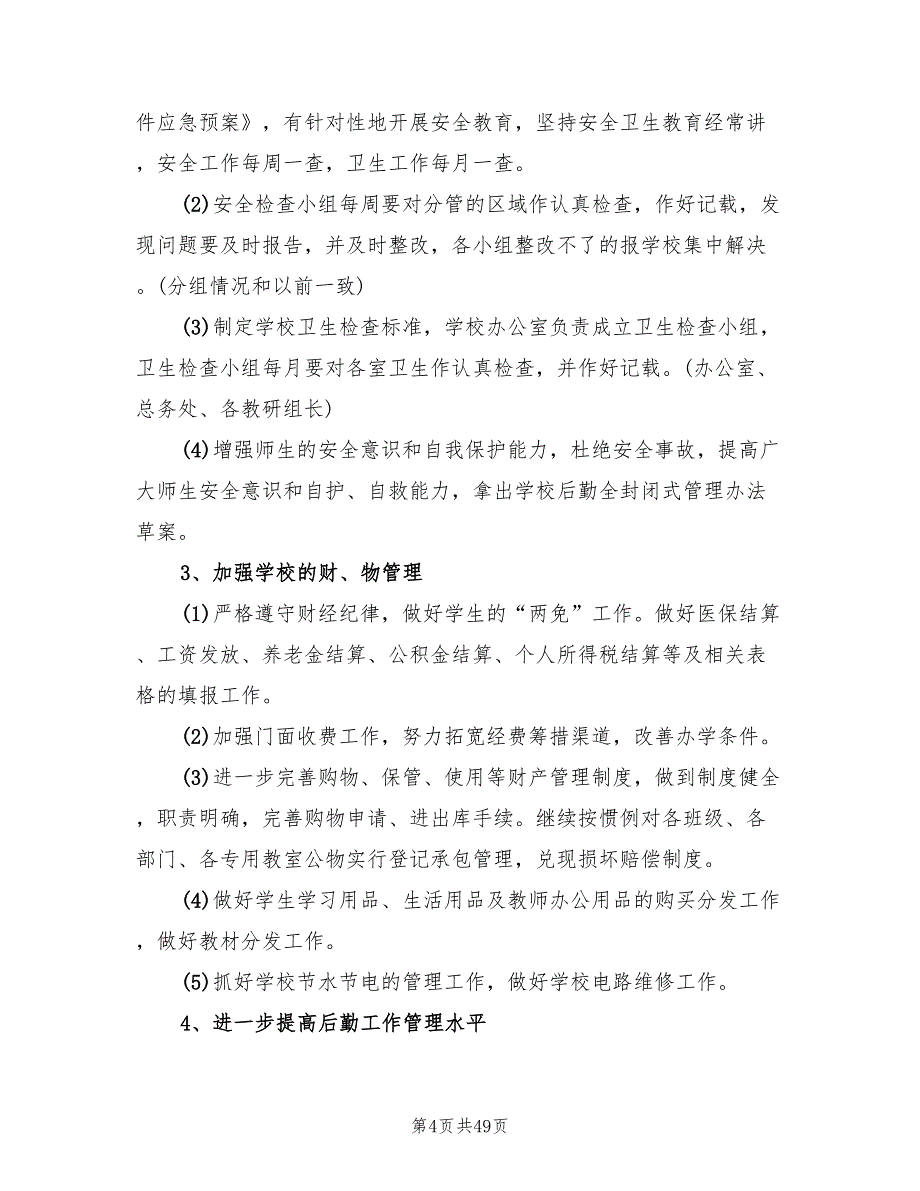 件应急预案》，有针对性地开展安全教育，坚持安全卫生教育经常讲
，安全工作每周一查，卫生工作每月一查。
(2)安全检查小组每周要对分管的区域作认真检查，作好记载，发
现问题要及时报告，并及时整改，各小组整改不了的报学校集中解决
。(分组情况和以前一致)
(3)制定学校卫生检查标准，学校办公室负责成立卫生检查小组，
卫生检查小组每月要对各室卫生作认真检查，并作好记载。(办公室、
总务处、各教研组长)
(4)增强师生的安全意识和自我保护能力，杜绝安全事故，提高广
大师生安全意识和自护、自救能力，拿出学校后勤全封闭式管理办法
草案。
3、加强学校的财、物管理
(1)严格遵守财经纪律，做好学生的“两免”工作。做好医保结算
、工资发放、养老金结算、公积金结算、个人所得税结算等及相关表
格的填报工作。
(2)加强门面收费工作，努力拓宽经费筹措渠道，改善办学条件。
(3)进一步完善购物、保管、使用等财产管理制度，做到制度健全
，职责明确，完善购物申请、进出库手续。继续按惯例对各班级、各
部门、各专用教室公物实行登记承包管理，兑现损坏赔偿制度。
(4)做好学生学习用品、生活用品及教师办公用品的购买分发工作
，做好教材分发工作。
(5)抓好学校节水节电的管理工作，做好学校电路维修工作。
4、进一步提高后勤工作管理水平
第4页共49页